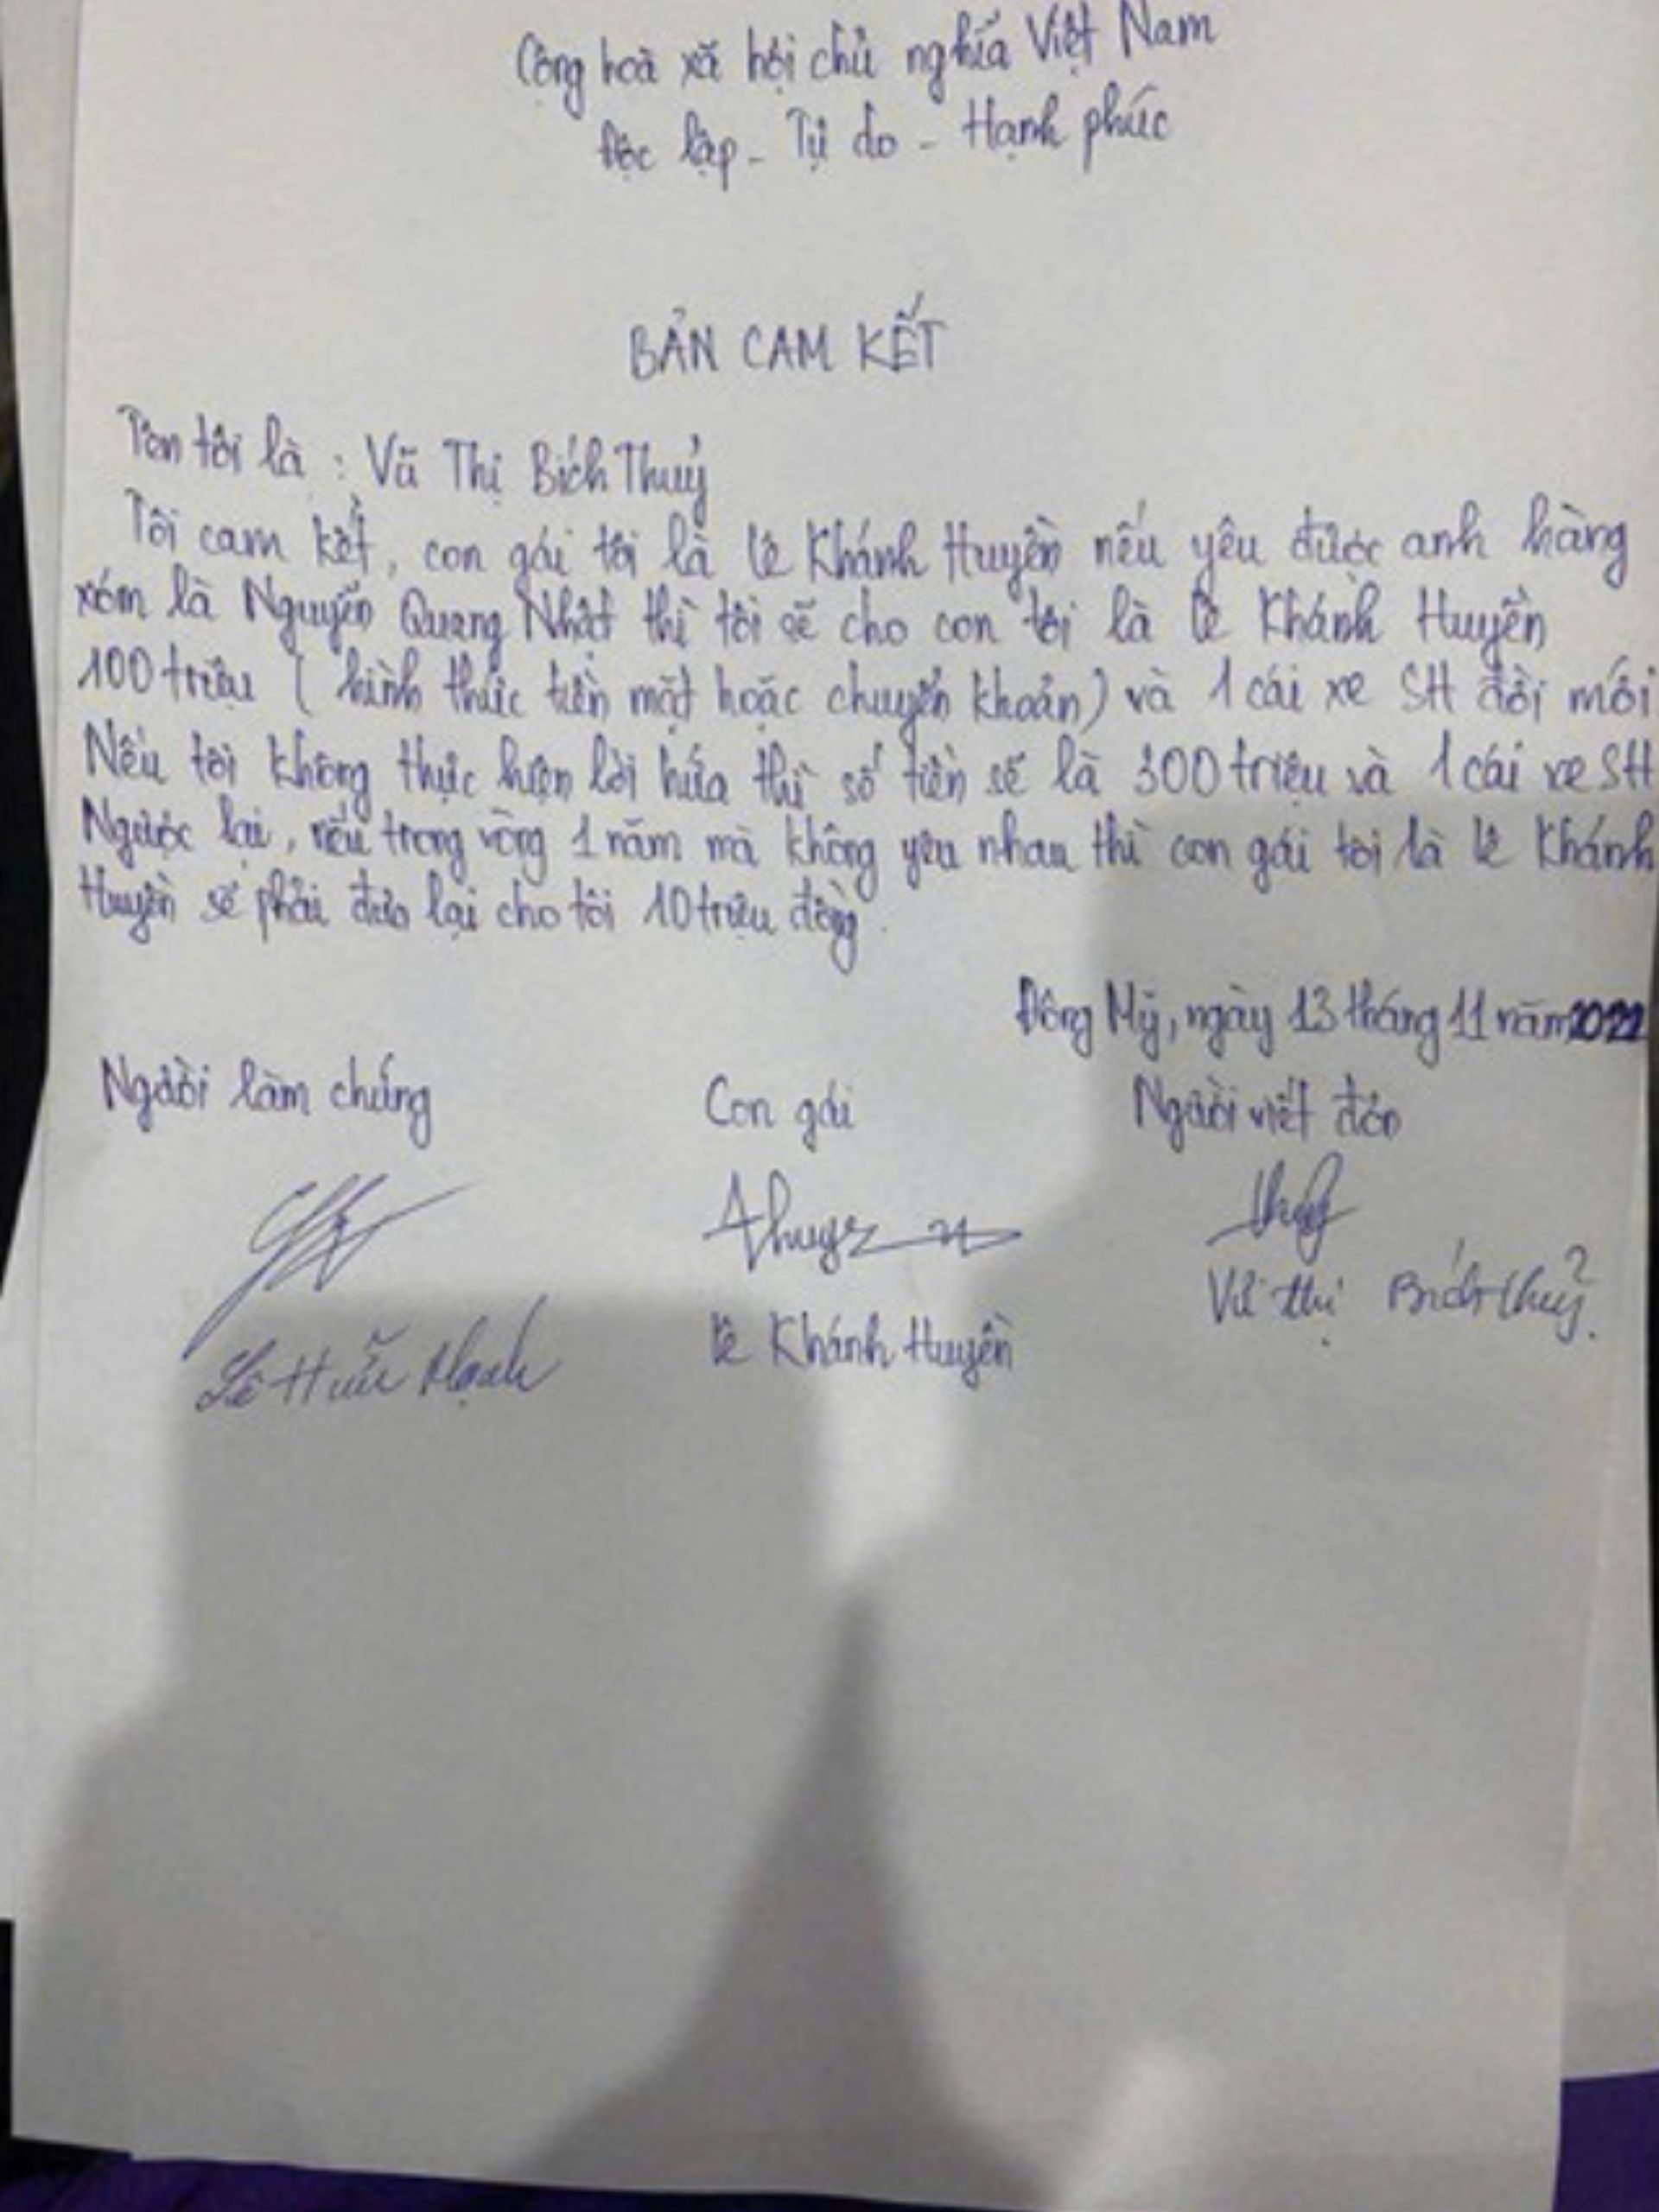 Cộng hoà xã hội chủ nghĩa Việt Nam
Độc lập - Tự do - Hạnh phúc
BẢN CAM KẾT
Tên tôi là : Vũ Thị Bích Thuỷ
Tôi cam kết, con gái tôi là Lê Khánh Huyền nếu yêu được anh hàng
xóm là Nguyễn Quang Nhật thì tôi sẽ cho con tôi là Lê Khánh Huyền
100 triệu ( hình thức tiền mặt hoặc chuyển khoản) và 1 cái xe SH đời mới
Nếu tôi không thực hiện lời hứa thì số tiền sẽ là 300 triệu và 1 cái xe SH
Ngược lại, nếu trong vòng 1 năm mà không yêu nhau thì con gái tôi là Lê Khánh
Huyền sẽ phải đưa lại cho tôi 10 triệu đồng.
Đông Mỹ, ngày 13 tháng 11 năm 2022
Người làm chứng Con gái Người viết đơn
Lê Hữu Mạnh Lê Khánh Huyền Vũ Thị Bích Thuỷ.